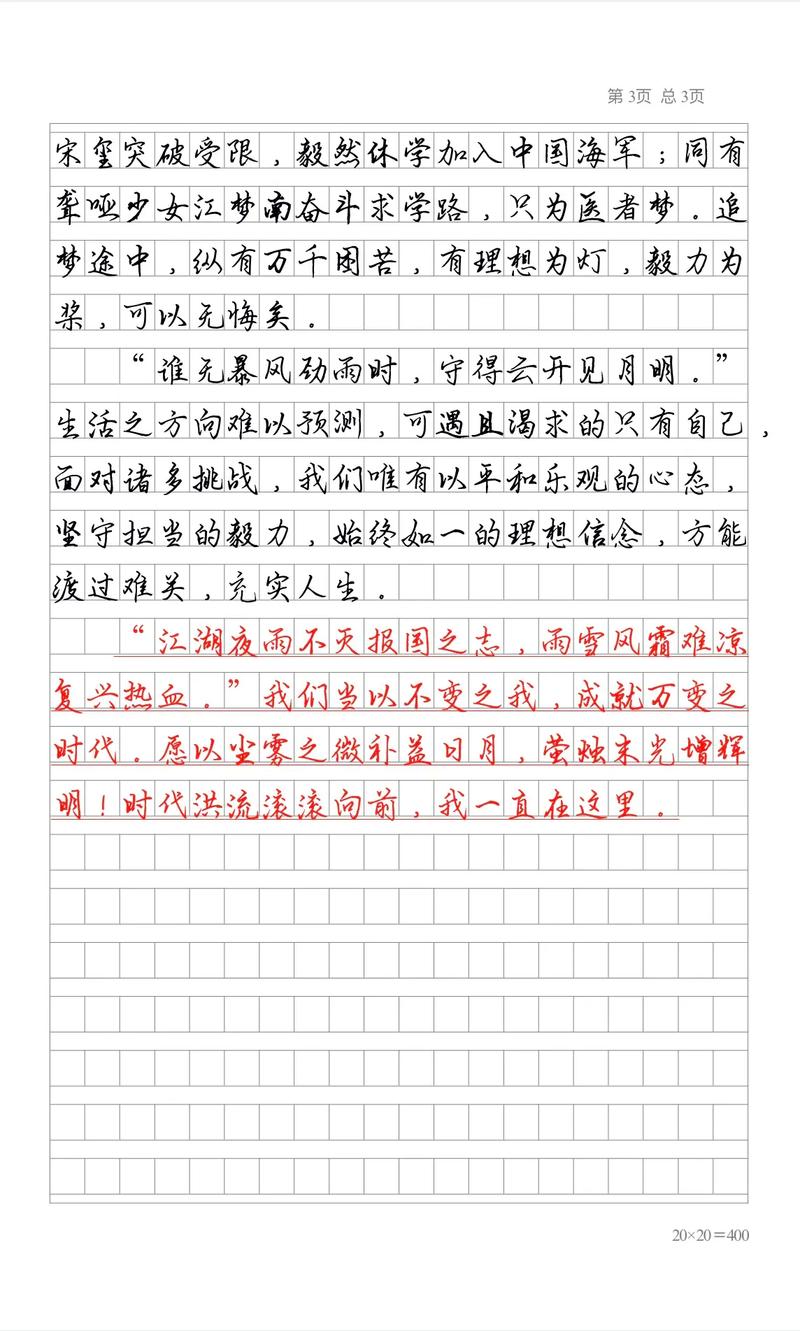 第 3页 总 3页
宋玺突破受限，毅然休学加入中国海军；同有
聋哑少女江梦南奋斗求学路，只为医者梦。追
梦途中，纵有万千困苦，有理想为灯，毅力为
桨，可以无悔矣。
“谁无暴风劲雨时，守得云开见月明。”
生活之方向难以预测，可遇且渴求的只有自己，
面对诸多挑战，我们唯有以平和乐观的心态，
坚守担当的毅力，始终如一的理想信念，方能
渡过难关，充实人生。
“江湖夜雨不灭报国之志，雨雪风霜难凉
复兴热血。”我们当以不变之我，成就万变之
时代。愿以尘雾之微补益日月，萤烛末光增辉
明！时代洪流滚滚向前，我一直在这里。
20×20＝400